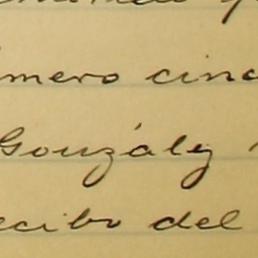 úmero cinc
Gonzálz
ecibo del